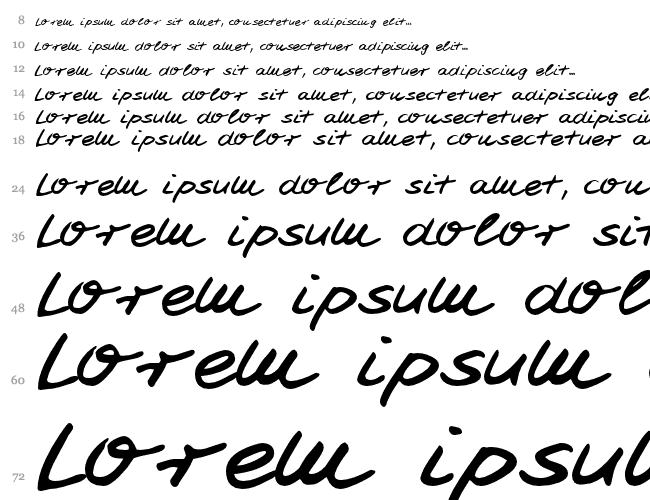 8 Lorem ipsum dolor sit amet, consectetuer adipiscing elit...
10 Lorem ipsum dolor sit amet, consectetuer adipiscing elit...
12 Lorem ipsum dolor sit amet, consectetuer adipiscing elit...
14 Lorem ipsum dolor sit amet, consectetuer adipiscing el
16 Lorem ipsum dolor sit amet, consectetuer adipiscin
18 Lorem ipsum dolor sit amet, consectetuer a
24 Lorem ipsum dolor sit amet, con
36 Lorem ipsum dolor sit
48 Lorem ipsum dol
60 Lorem ipsum
72 Lorem ipsu